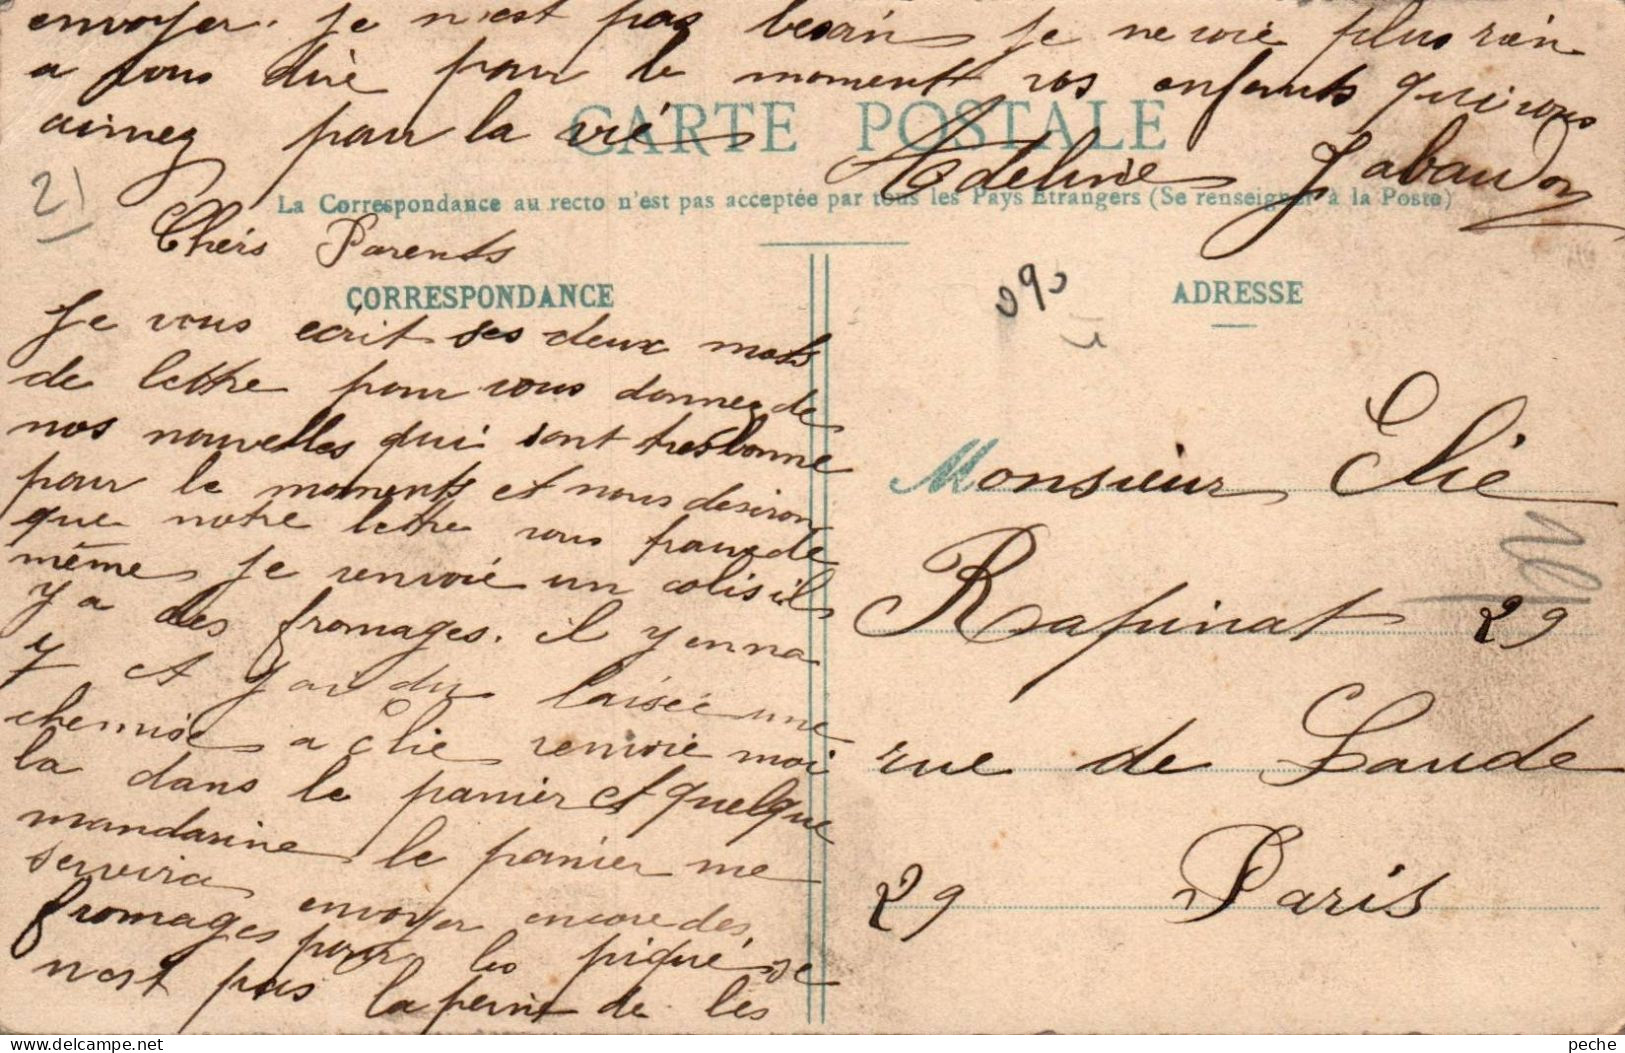 envoyer. je n'est pas besoin je ne voie plus rien
a vous dire pour le moment vos enfants qui vous
aimez pour la vie
CARTE POSTALE
Adeline Jabaudon
La Correspondance au recto n'est pas acceptée par tous les Pays Etrangers (Se renseigner à la Poste)
21
Cheis Parents
CORRESPONDANCE
Je vous ecrit ses deux mots
de lettre pour vous donnez de
nos nouvelles qui sont tres bonne
pour le moments et nous desiron
que notre lettre vous trouve de
même je renvoie un colis il
y a des fromages. il y en na
7 et j'ai du laisée une
chemise a Elie renvoie moi
la dans le panier et quelque
mandarine le panier me
servira envoyer encore des
fromages pour les piqué, se
n'est pas la peine de les
ADRESSE
Monsieur Elie
Rapinat 29
rue de Laude
29 Paris
peche